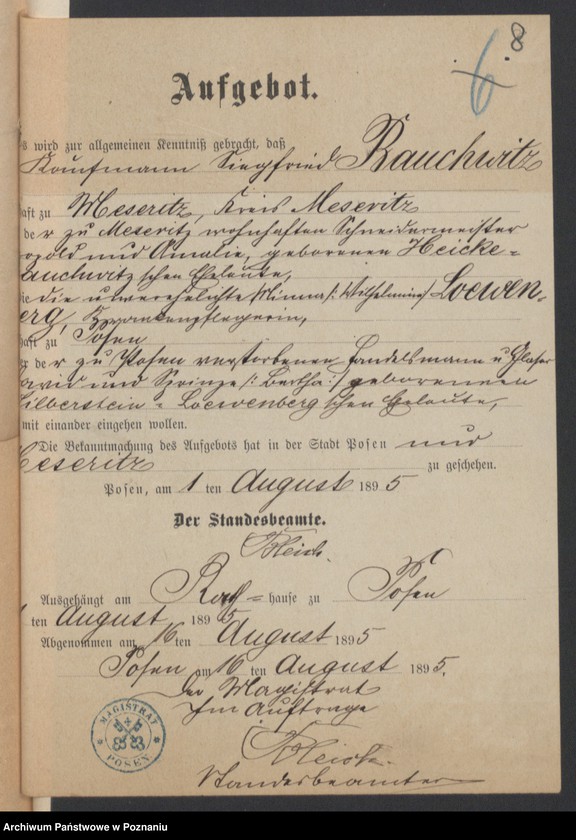 8
6
Aufgebot.
s wird zur allgemeinen Kenntniß gebracht, daß
Kaufmann Siegfried Rauchwitz
haft zu Meseritz, Kreis Meseritz
der zu Meseritz wohnhaften Schneidermeister
opold und Amalie, geborenen Heicke-
auchwitz'schen Eheleute,
die unverehelichte Minna /: Wilhelmine :/ Loewen-
erg, Krankenpflegerin,
haft zu Posen
der zu Posen verstorbenen Handelsmann u Glaser
avid und Prinze /: Bertha :/ geborenen
ilberstein - Loewenberg'schen Eheleute,
mit einander eingehen wollen.
Die Bekanntmachung des Aufgebots hat in der Stadt Posen und
eseritz zu geschehen.
Posen, am 1 ten August 1895
Der Standesbeamte.
Ausgehängt am Rath=hause zu Posen
ten August 1895
Abgenommen am 16 ten August 1895
Posen am 16 ten August 1895.
Der Magistrat
Im Auftrage
Standesbeamter
* MAGISTRAT * POSEN
Archiwum Państwowe w Poznaniu